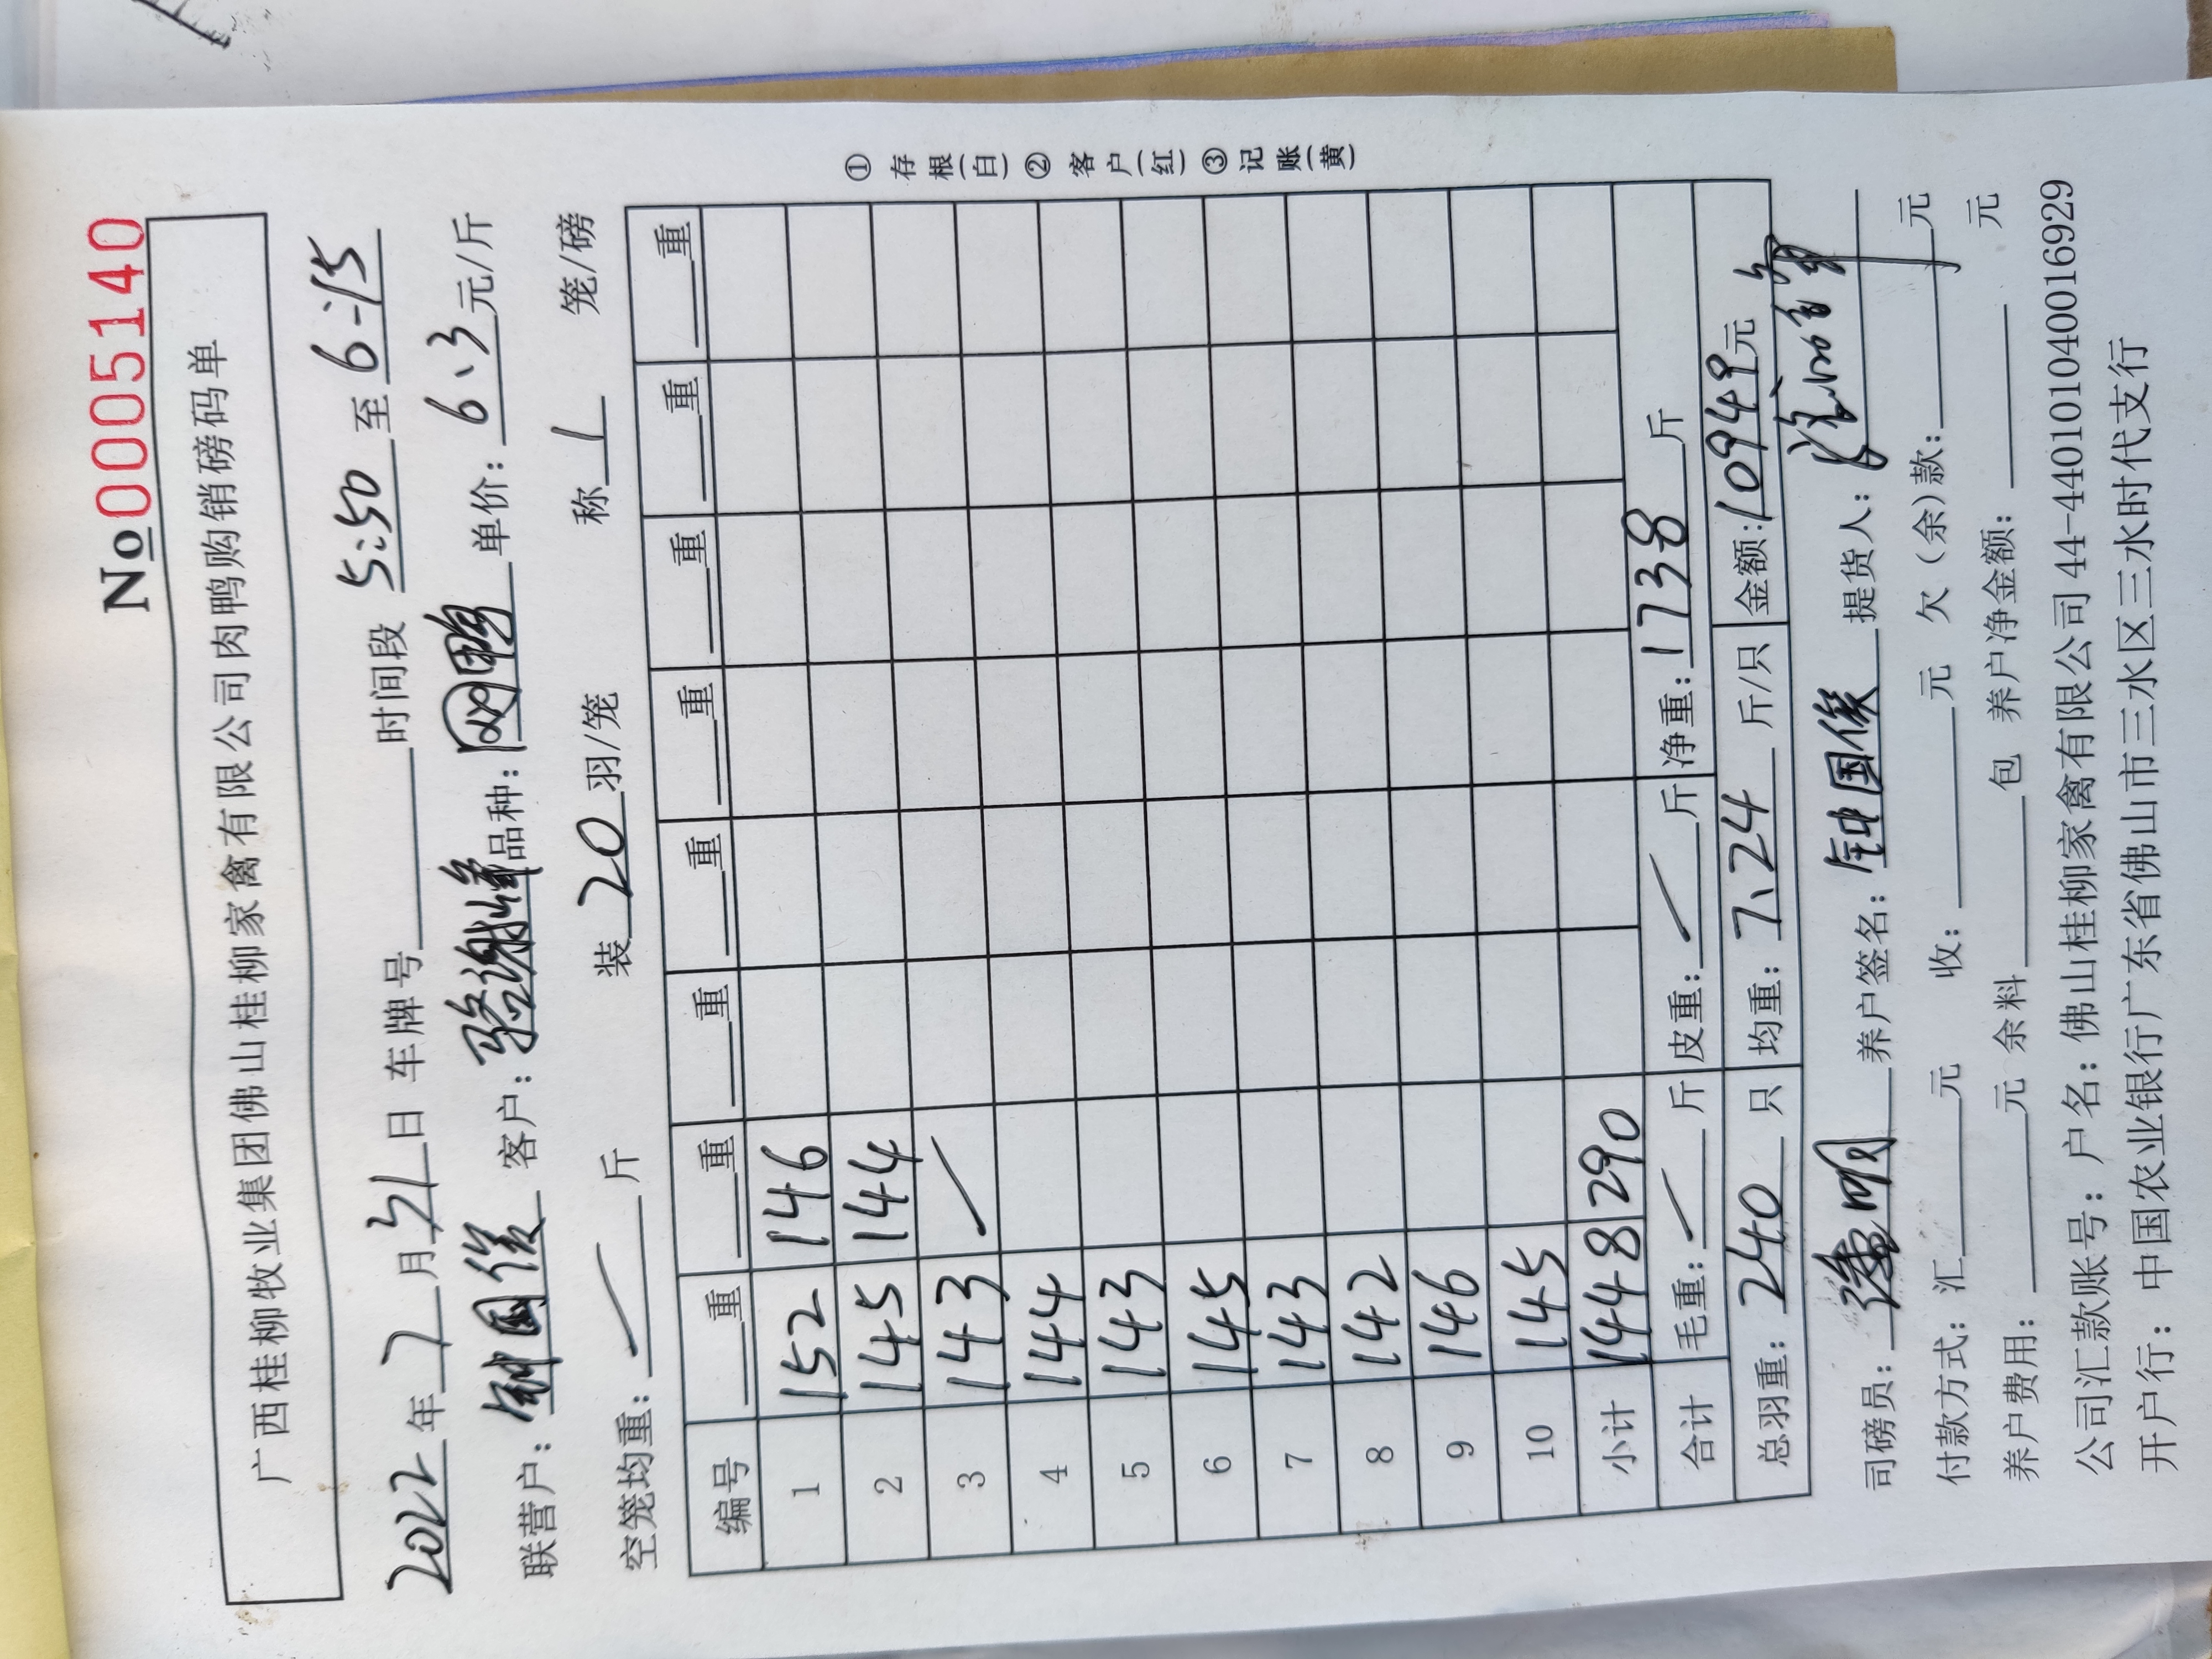 No 0005140
广西桂柳牧业集团佛山桂柳家禽有限公司肉鸭购销磅码单
2022年7月31日 车牌号 时间段 5:50 至 6:15
联营户：钟国俊 客户：骆谢峰 品种：网鸭 单价：6、3 元/斤
空笼均重： / 斤 装 20 羽/笼 称 1 笼/磅
编号 重 重 重 重 重 重 重 重
1 152 146
2 145 144
3 143 /
4 144
5 143
6 145
7 143
8 142
9 146
10 145
小计 1448 290
合计 毛重： / 斤 皮重： / 斤 净重：1738 斤
总羽重：240 只 均重：7、24 斤/只 金额：10949元
司磅员： 明 养户签名：钟国俊 提货人：
付款方式：汇 元 收： 元 欠（余）款： 元
养户费用： 元 余料 包 养户净金额： 元
公司汇款账号：户名：佛山桂柳家禽有限公司 44-440101040016929
开户行：中国农业银行广东省佛山市三水区三水时代支行
①存根(白)②客户(红)③记账(黄)